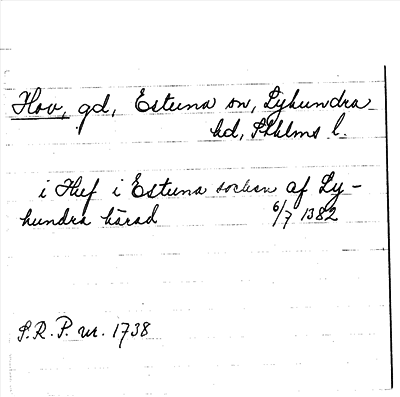 Hov, gd, Estuna sn, Lyhundra
hd, Sthlms l.
i Huf i Estuna sochn af Ly-
hundra härad 6/7 1382
S.R.P. nr. 1738